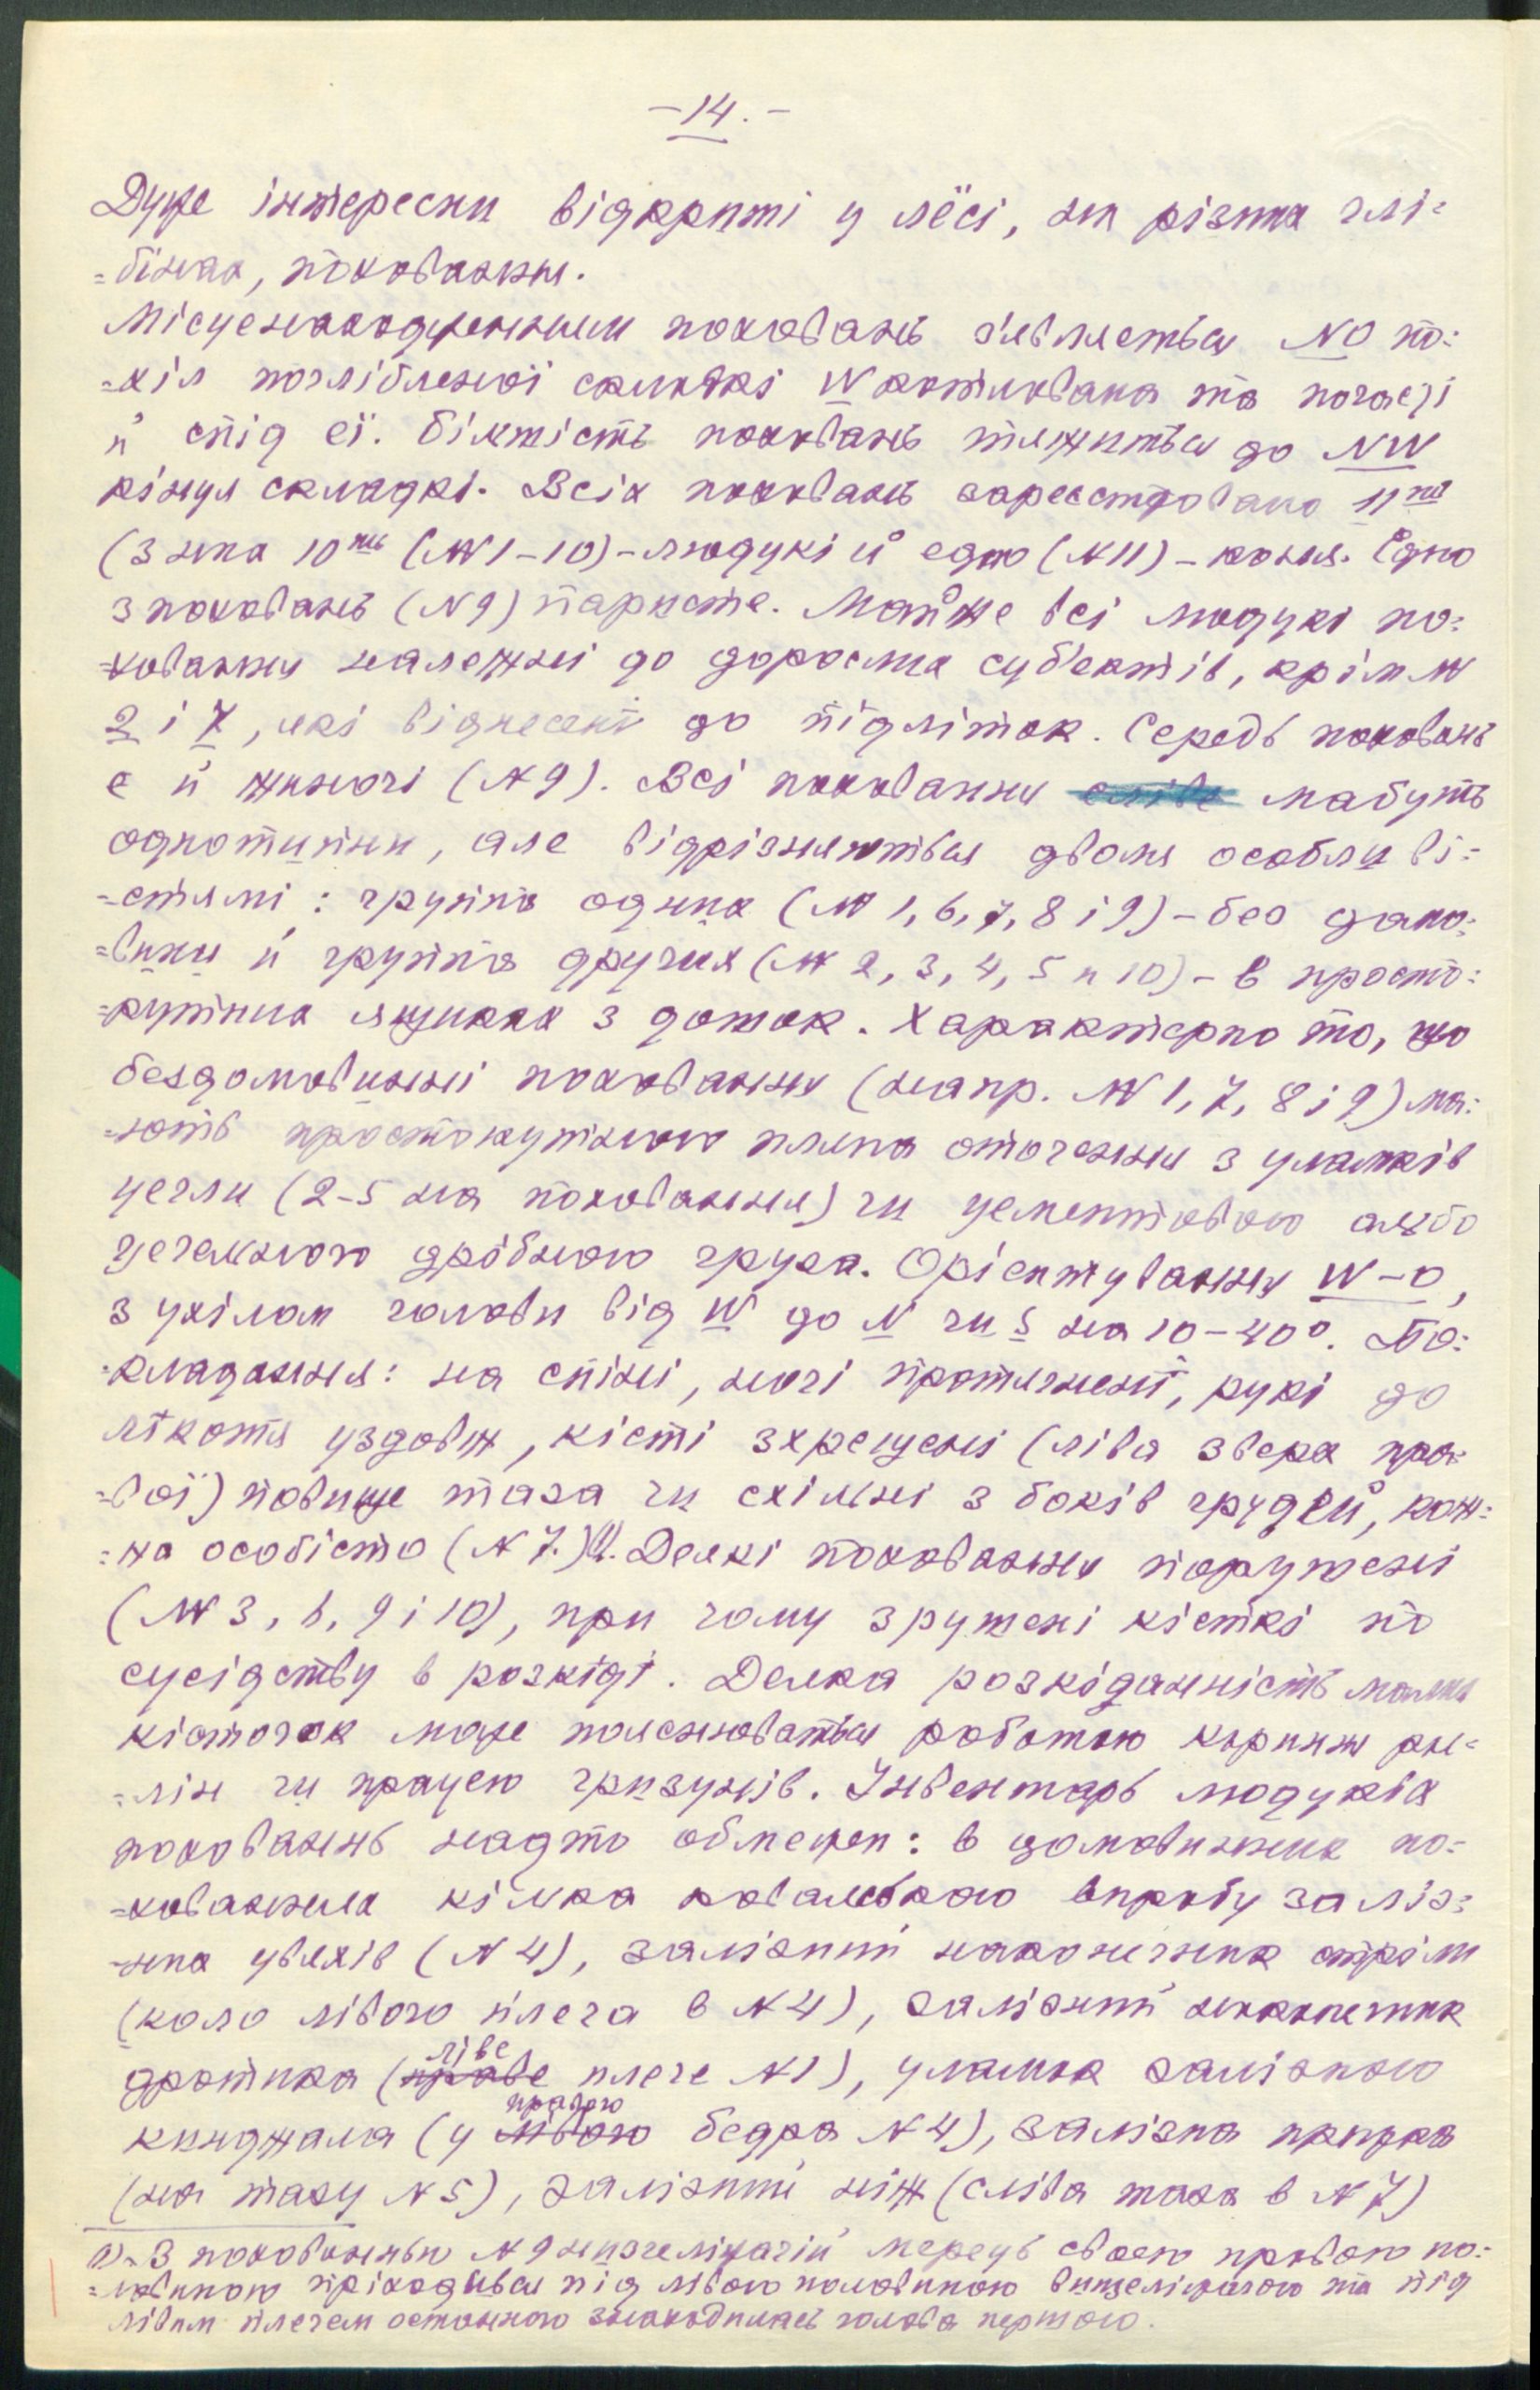 -14.-
Дуже інтересни відкриті у лёсі, на різних глі=
=бінах, поховання.
Місценаходженням поховань з'являеться NO по=
=хіл поглібленої складкі W котлована та почасті
й спід еї. Більшість поховань тяжиться до NW
кінця складкі. Всіх поховань зареєстровано 11ть
(З них 10ть (№№ 1-10) - людукі й едно (N 11) - коня. Едно
з поховань (N 9) паристе. Майже всі людукі по=
=ховання належні до дорослих суб'ектів, крім №№
2 і 7, які віднесені до підліток. Середь поховань
е й жиночі (N 9). Всі поховання мабуть
однотипни, але відрізняються двома особливі=
=стямі: группа одина (№№ 1, 6, 7, 8 і 9) - без домо=
=вини й группа другая (№№ 2, 3, 4, 5 и 10) - в просто=
=кутних ящиках з дошок. Характерно то, що
бездомовинні поховання (напр. №№ 1, 7, 8 і 9) ма=
=ють простокутного плана оточення з уламків
цегли (2-5 на поховання) чи цементового альбо
цегельного дрібного груза. Оріентування W-O,
з ухілом голови від W до N чи S на 10-40°. По=
=кладання: на спіні, ногі протягнені, рукі до
лѣкотя уздовж, кісті зхрещені (ліва зверх пра=
=вої) повище таза чи схільні з боків грудей, кож=
=на особісто (N 7.)1). Деякі поховання порушені
(№№ 3, 6, 9 і 10), при чому зрушені кісткі по
сусідству в розкіді. Деяка розкіданність малих
кісточок може пояснюваться роботою коріння рос=
=лін чи працею гризунів. Інвентарь людукіх
поховань надто обмежен: в домовинних по=
=хованнях кілька ковальского виробу заліз=
=них цвяхів (N 4), залізний наконечник стріли
(коло лівого плеча в N 4), залізний наконечник
дротика (праве ліве плече N 1), уламок залізного
кинджала (у лівого правого бедра N 4), залізна пряжка
(на тазу N 5), залізний ніж (сліва таза в N 7)
1) - З похованьи N 9 низчележачій мерець своею правою по=
=ловиною приходився під лівою половиною вищележачого та під
лівим плечем останнього знаходилась голова першого.